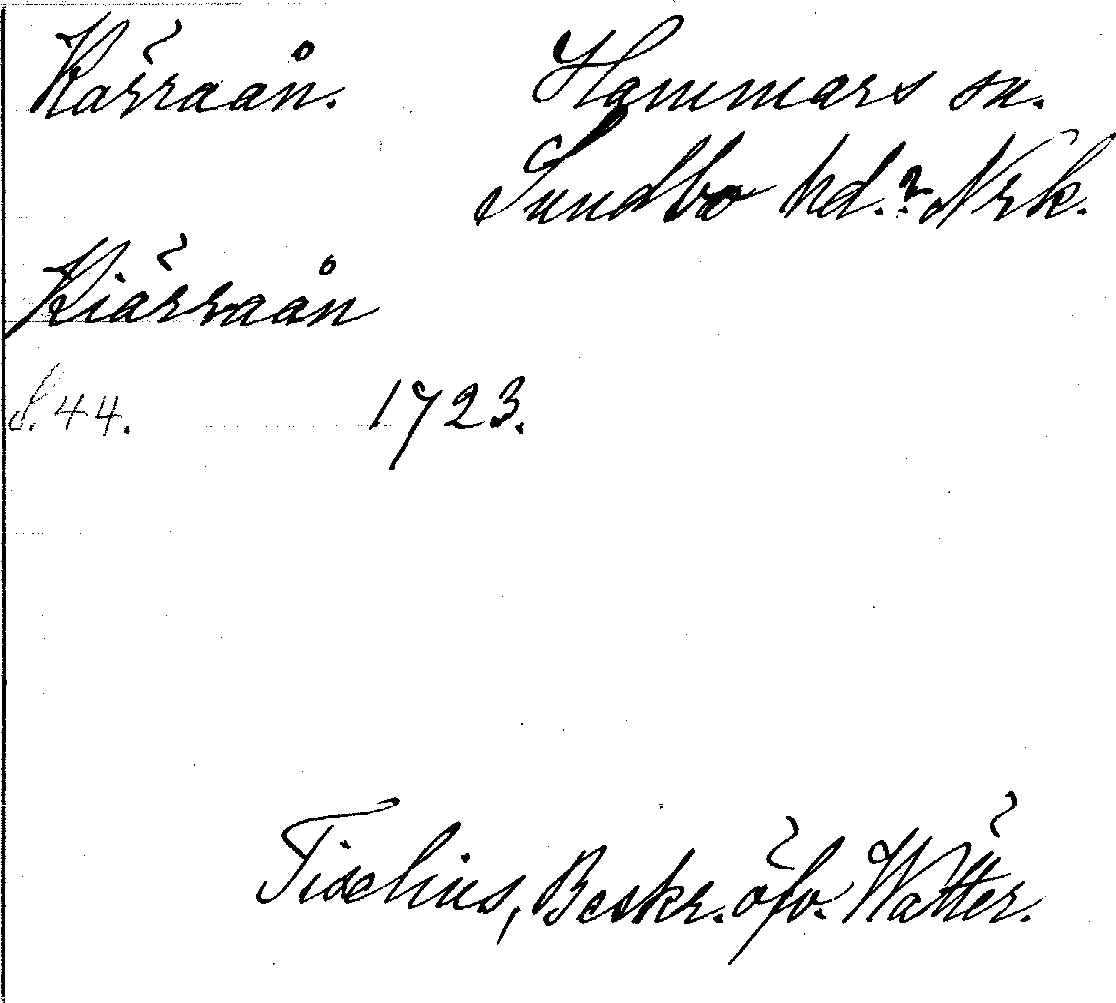 Kärraån. Hammars sn.
Sundbo hd.? Nrk.
Kiärraån
S. 44. 1723.
Tiselius, Beskr. öfv. Wätter.